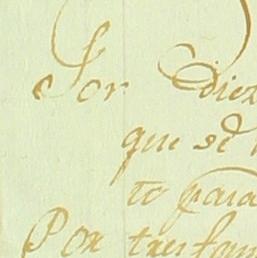 Por Diez
que se
to para
Por tres fam